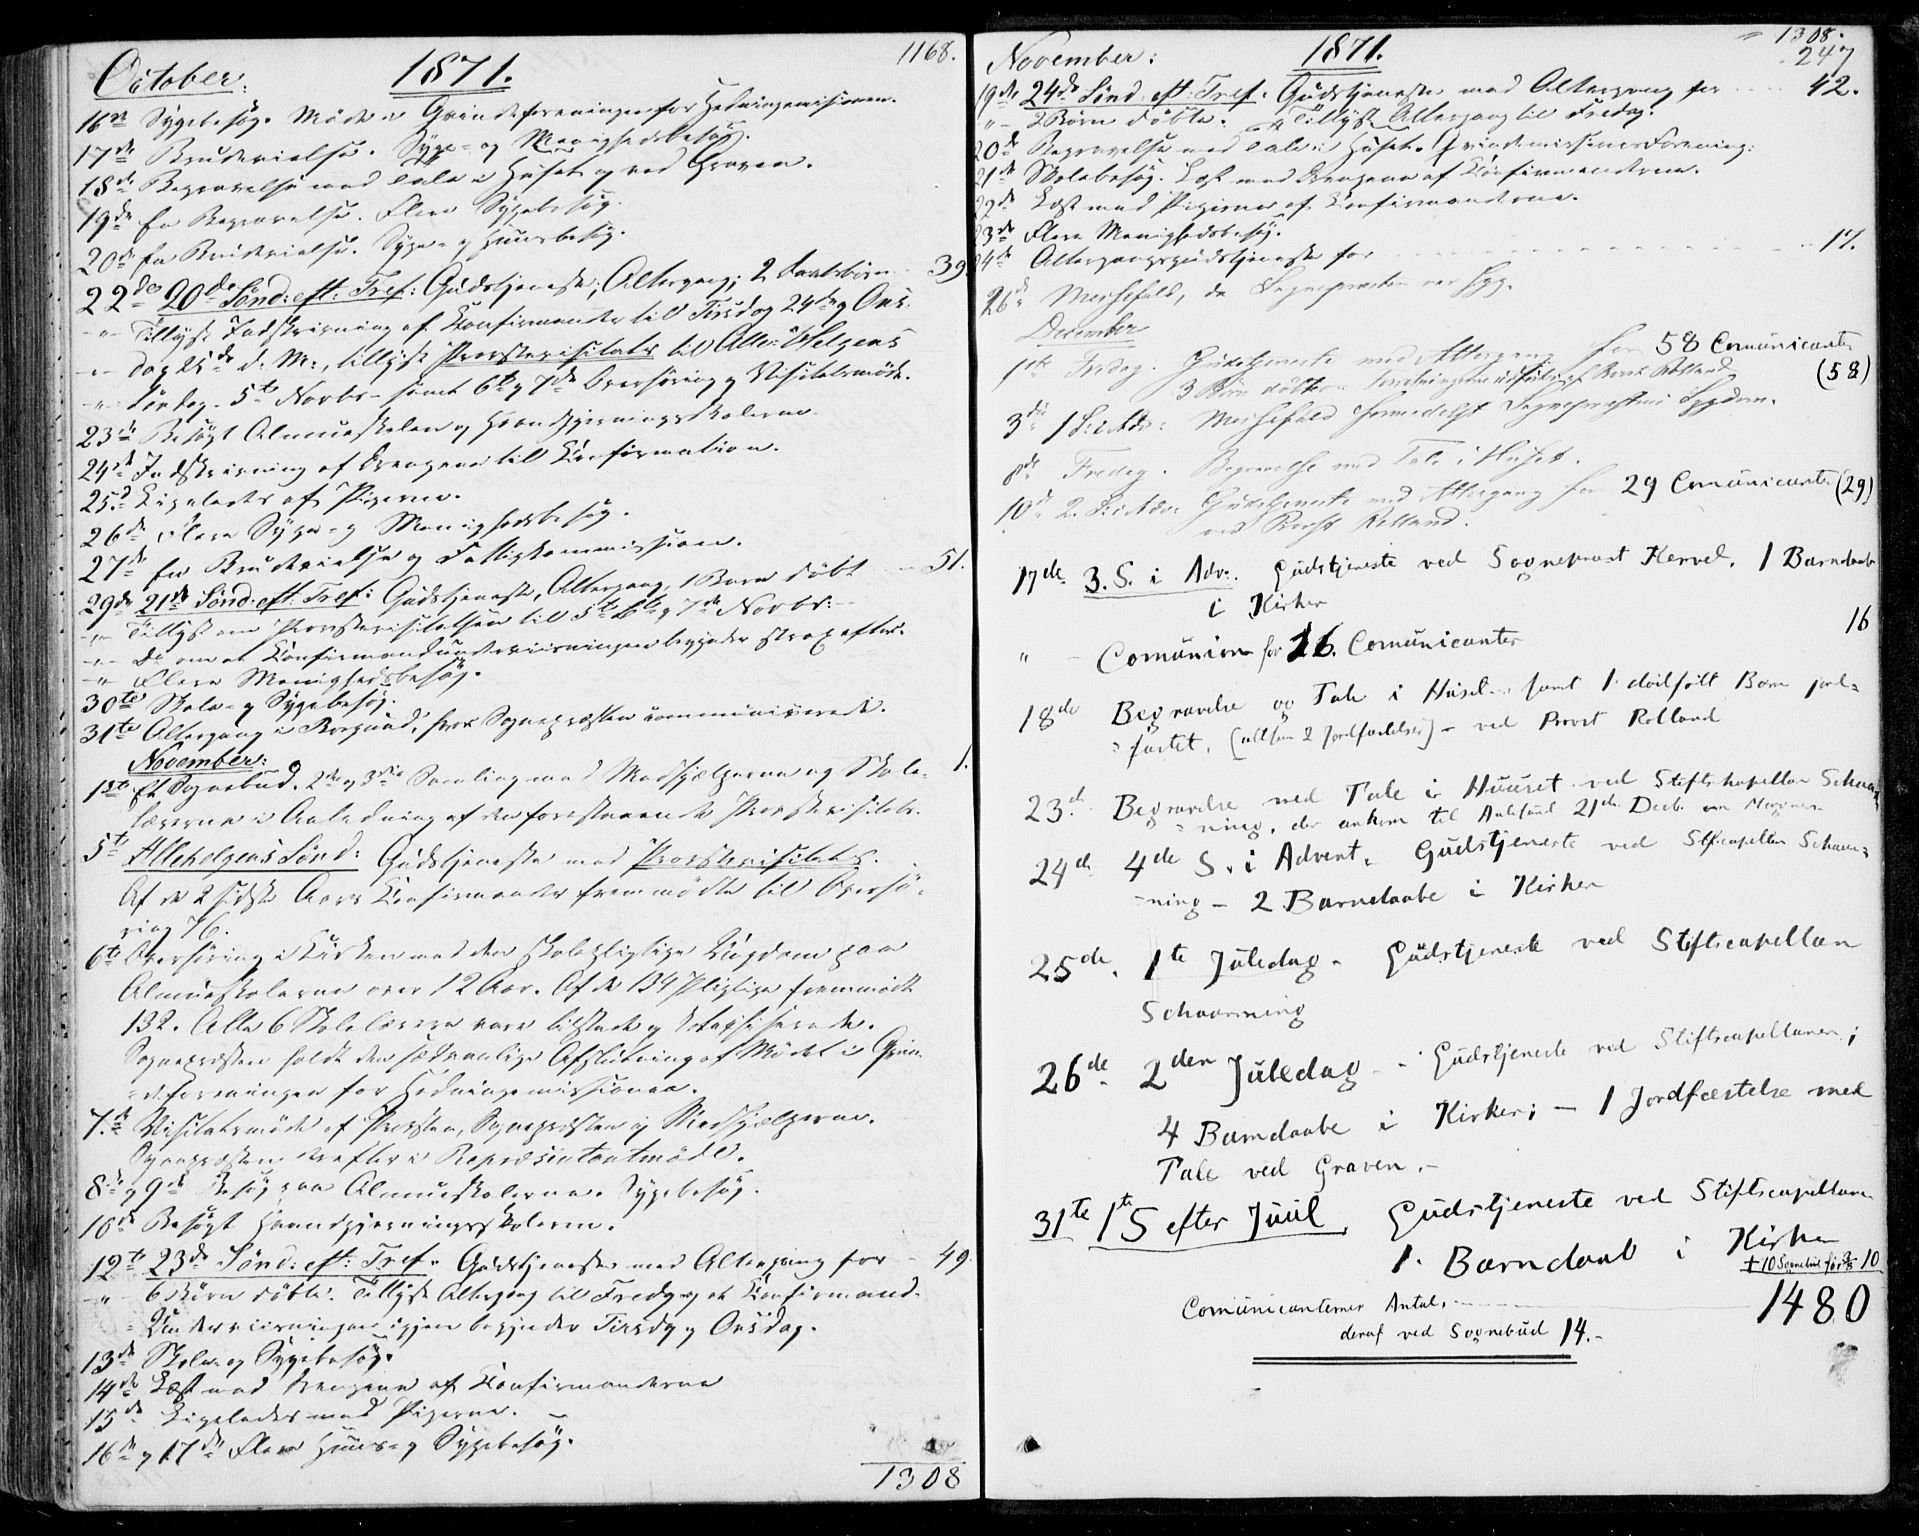 October: 1871. 1168.
16de Sygebesøg. Møde i Qvindeforeningen for Hedningemissionen.
17de Brudevielse. Syge- og Menighedsbesøg.
18de Begravelse med Tale i Huset og ved Graven.
19de En Begravelse. Flere Sygebesøg.
20de En Brudevielse. Syge- og Huusbesøg.
22de 20de Sønd: eft: Tref: Gudstjeneste, Altergang, 2 Daabsbørn 39.
-"- Tillyst Indskrivning af Konfirmander til Tirsdag 24de og Ons-
-"- dag 25de d. M:, tillyst Provstevisitats til Alle-Helgens
-"- Søndag 5te Novbr - samt 6te og 7de Overhøring og Visitatsmøde.
23de Besøgt Almueskolen og Haandgjerningsskolerne.
24de Indskrivning af Drengene til Konfirmation.
25de Ligeledes af Pigerne.
26de Flere Syge- og Menighedsbesøg.
27de En Brudevielse og Fattigkommission.
29de 21de Sønd: eft: Tref: Gudstjeneste, Altergang, 1 Barn døbt 51.
-"- Tillyst om Provstevisitatsen til 5te 6te og 7de Novbr:
-"- Do om at Konfirmandunderviisningen begynder strax efter.
-"- Flere Menighedsbesøg.
30te Skole- og Sygebesøg.
31te Altergang i Borgund, hvor Sognepræsten communicerede.
November:
1ste Et Sognebud. 2de og 3die Samling med Medhjælperne og Skole- 1.
lærerne i Anledning af den forestaaende Provstevisitats.
5te Allehelgens Sønd: Gudstjeneste med Provstevisitats.
Af de 2 sidste Aars Konfirmander fremmødte til Overhø-
ring 76.
6te Overhøring i Kirken med den skolepligtige Ungdom paa
Almueskolerne over 12 Aar. Af de 134 Pligtige fremmødte
132. Alle 6 Skolelærere vare tilstede og katechiserede.
Sognepræsten holdt den sædvanlige Afslutning af Mødet i Qvin-
deforeningen for Hedningemissionen.
7de Visitatsmøde af Provsten, Sognepræsten og Medhjælperne.
Sognepræsten derefter i Repræsentantmøde.
8de og 9de Besøg paa Almueskolerne. Sygebesøg.
10de Besøgt Haandgjerningsskolerne.
12te 23de Sønd: eft: Tref. Gudstjeneste med Altergang for 49.
-"- 6 Børn døbte. Tillyst Altergang til Fredag og at Konfirmand-
Underviisningen igjen begynder Tirsdag og Onsdag.
13de Skole- og Sygebesøg.
14de Læst med Drengene af Konfirmanderne
15de Ligeledes med Pigerne.
16de og 17de Flere Huus- og Sygebesøg.
1308
November: 1871. 1308.
247
19de 24de Sønd: eft: Tref. Gudstjeneste med Altergang for 42.
"- 2 Børn døbte. Tillyst Altergang til Fredag.
20de Begravelse med Tale i Huset. Qvindemissionsforening.
21de Skolebesøg. Læst med Drengene af Konfirmanderne.
22de Læst med Pigerne af Konfirmanderne.
23de Flere Menighedsbesøg.
24de Altergangsgudstjeneste for 17.
26de Messefald, da Sognepræsten var syg.
December
1ste Fredag. Gudstjeneste med Altergang for 58 Comunicanter
3 Børn døbte. Forretningerne udførte af Provst Rolland (58)
3die 1 S. i Adv: Messefald formedelst Sognepræstens Sygdom.
8de Fredag. Begravelse med Tale i Huset.
10de 2. S. i Adv: Gudstjeneste med Altergang for 29 Comunicanter (29)
ved Provst Rolland.
17de 3. S. i Adv:. Gudstjeneste ved Sognepræst Kervel. 1 Barnedaab
i Kirken
" - Comunion for 16. Comunicanter 16
18de Begravelse og Tale i Huset - samt 1 dødfødt Barn jord-
fæstet. (altsaa 2 Jordfæstelser) - ved Provst Rolland
23de Begravelse med Tale i Huuset ved Stiftskapellan Schaan-
ning, der ankom til Aalesund 21de Decb. om Morgenen
24de 4de S. i Advent. Gudstjeneste ved Stiftscapellan Schaan-
ning - 2 Barnedaabe i Kirken
25de. 1te Juledag - Gudstjeneste ved Stiftscapellan
Schaanning
26de 2den Juledag - Gudstjeneste ved Stiftscapellanen;
4 Barndaabe i Kirken; - 1 Jordfæstelse med
Tale ved Graven.-
31te 1te S efter Juul. Gudstjeneste ved Stiftscapellanen
1. Barndaab i Kirken
+ 10 Sognebud 10
Comunicanternes Antal. 1480
deraf ved Sognebud 14.-